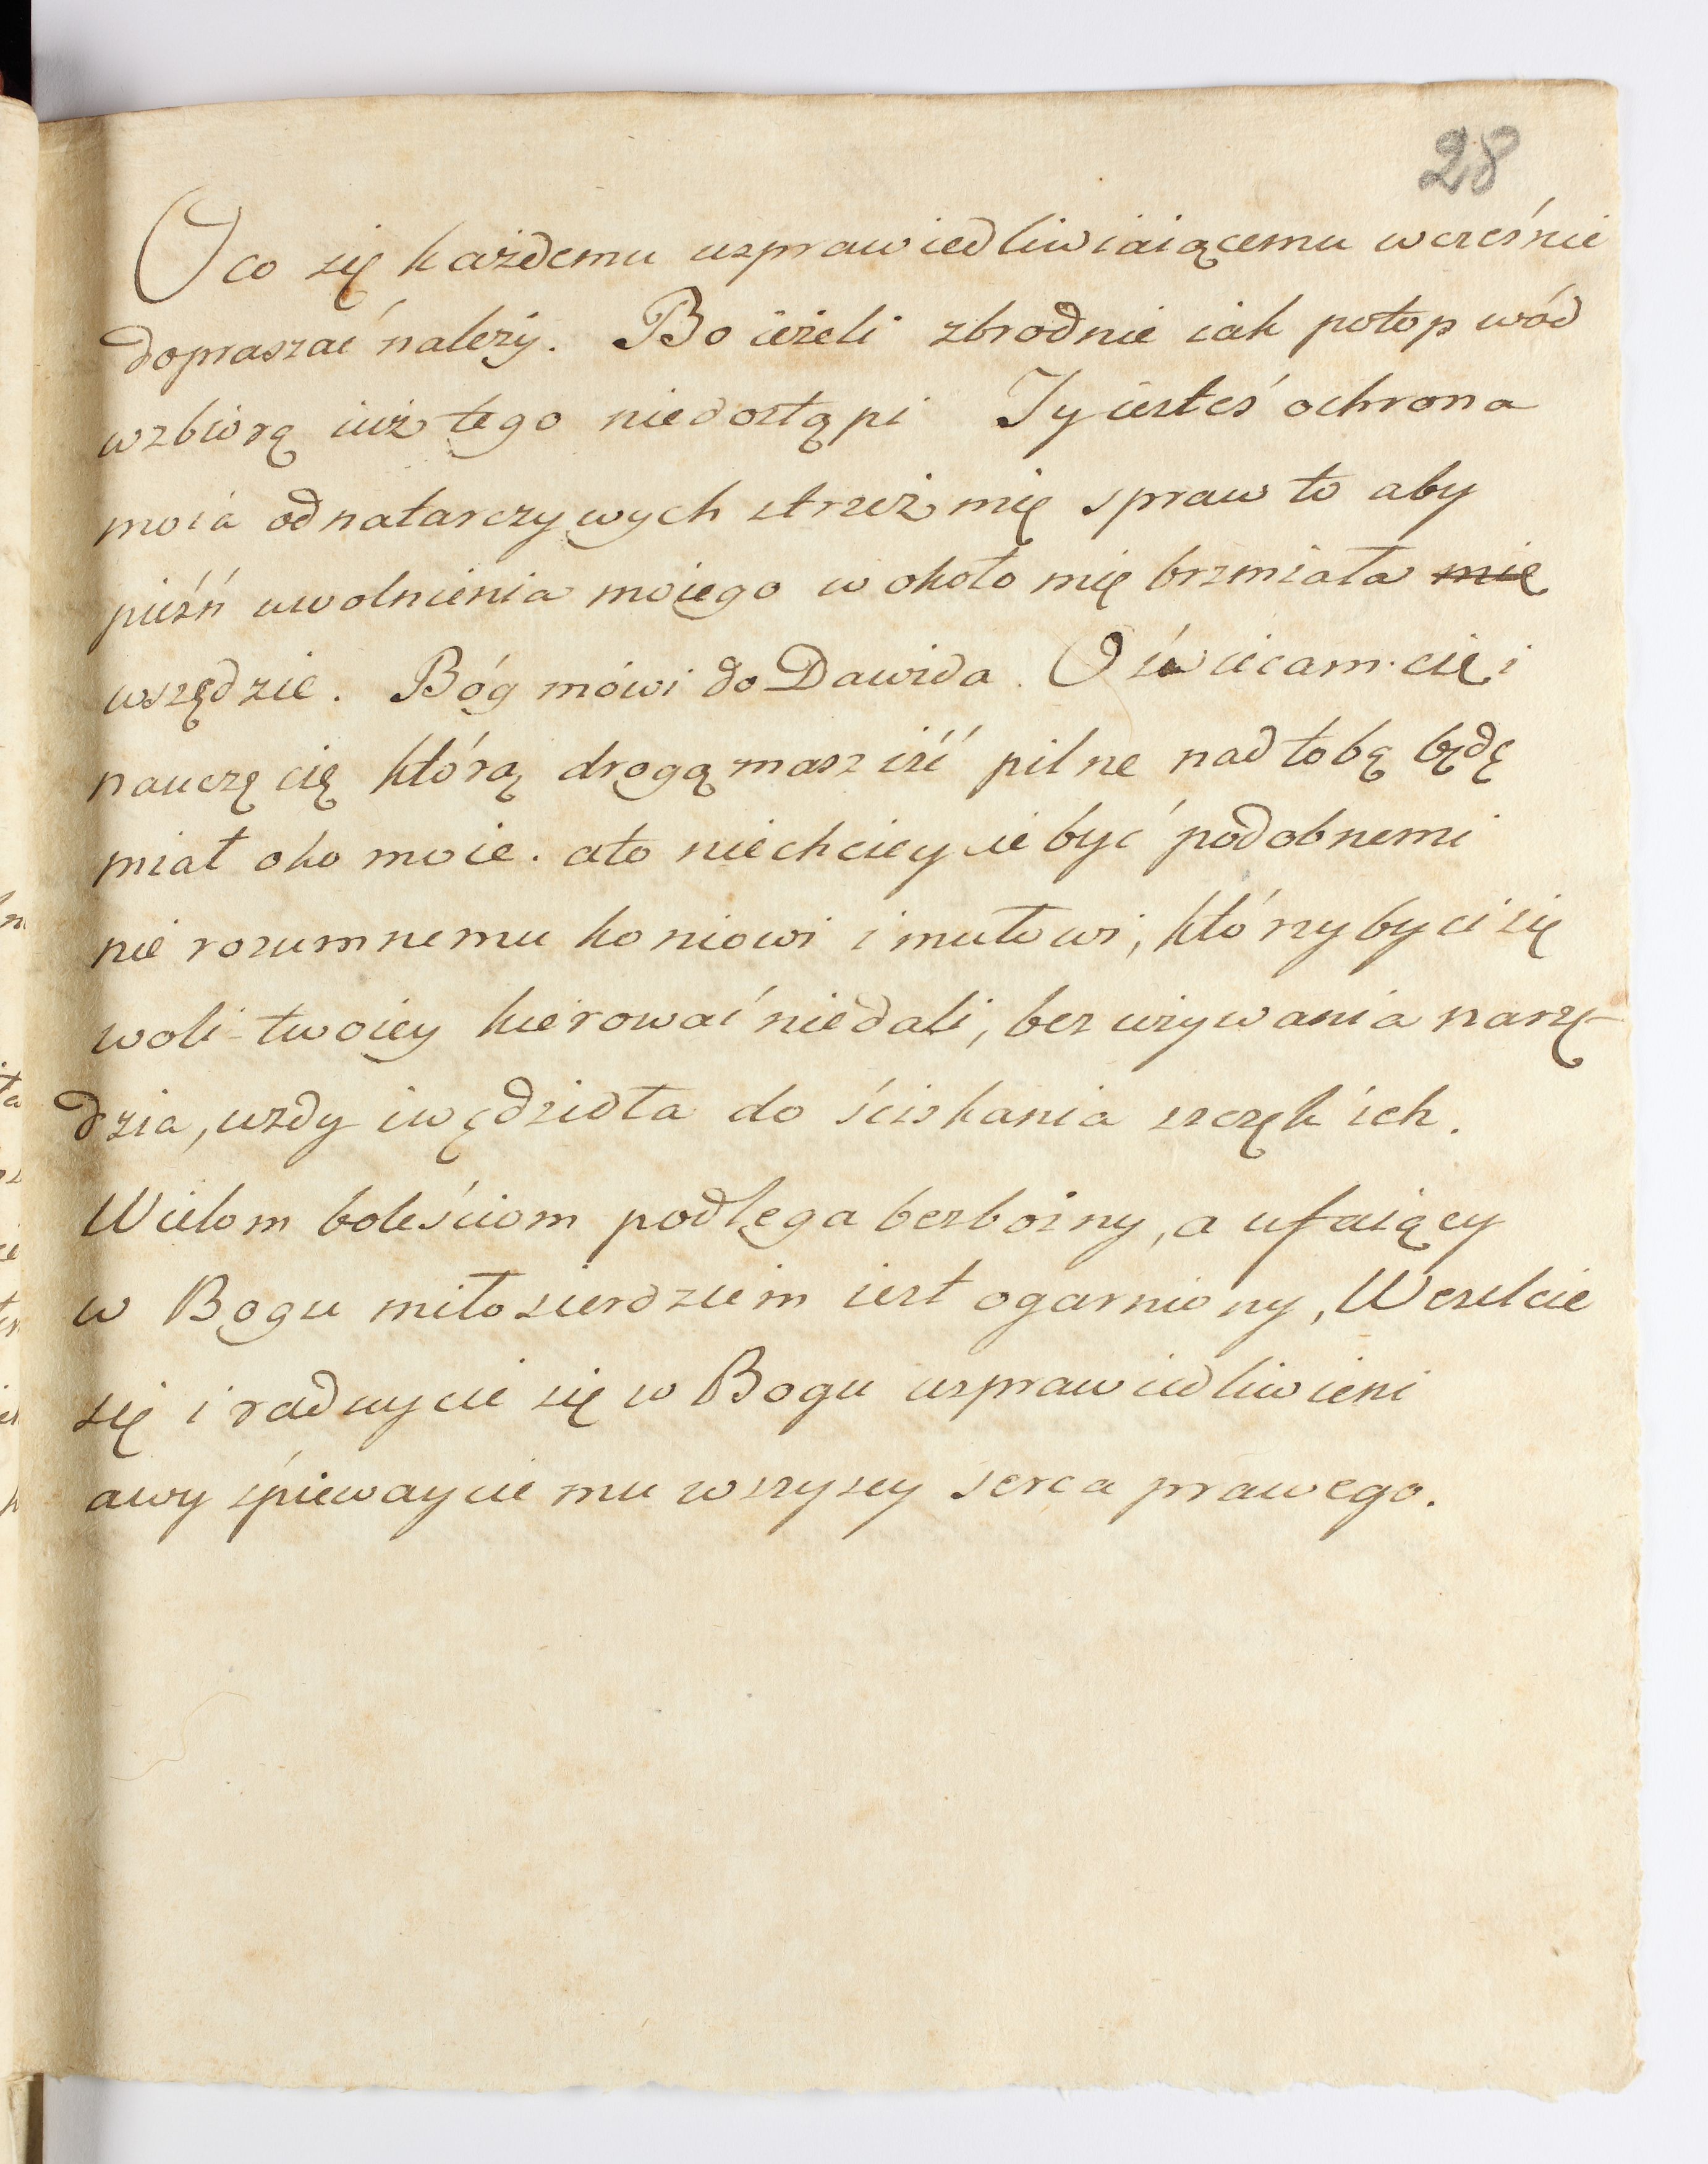 28
O co się każdemu usprawiedliwiaiącemu wcześnie
dopraszać należy. Bo ieżeli zbrodnie iak potop wód
wzbiorą iuż tego niedostąpi Ty iesteś ochrona
moia od natarczywych strzeż mię spraw to aby
pieśń uwolnienia moiego w około mię brzmiała mię
wszędzie. Bóg mówi do Dawida. Oświecam cię i
nauczę cię którą drogą masz iść pilne nad tobą będę
miał oko moie. ato niechcieycie być podobnemi
nie rozumnemu koniowi i mułowi, którzyby ci się
woli twoiey kierować niedali, bez używania narzę-
dzia, uzdy i wędzidła do ściskania szczęk ich.
Wielom boleściom podlega bezbożny, a ufaiący
w Bogu miłosierdziem iest ogarniony, Weselcie
się i raduycie się w Bogu usprawiedliwieni
a wy śpiewaycie mu wszyscy serca prawego.